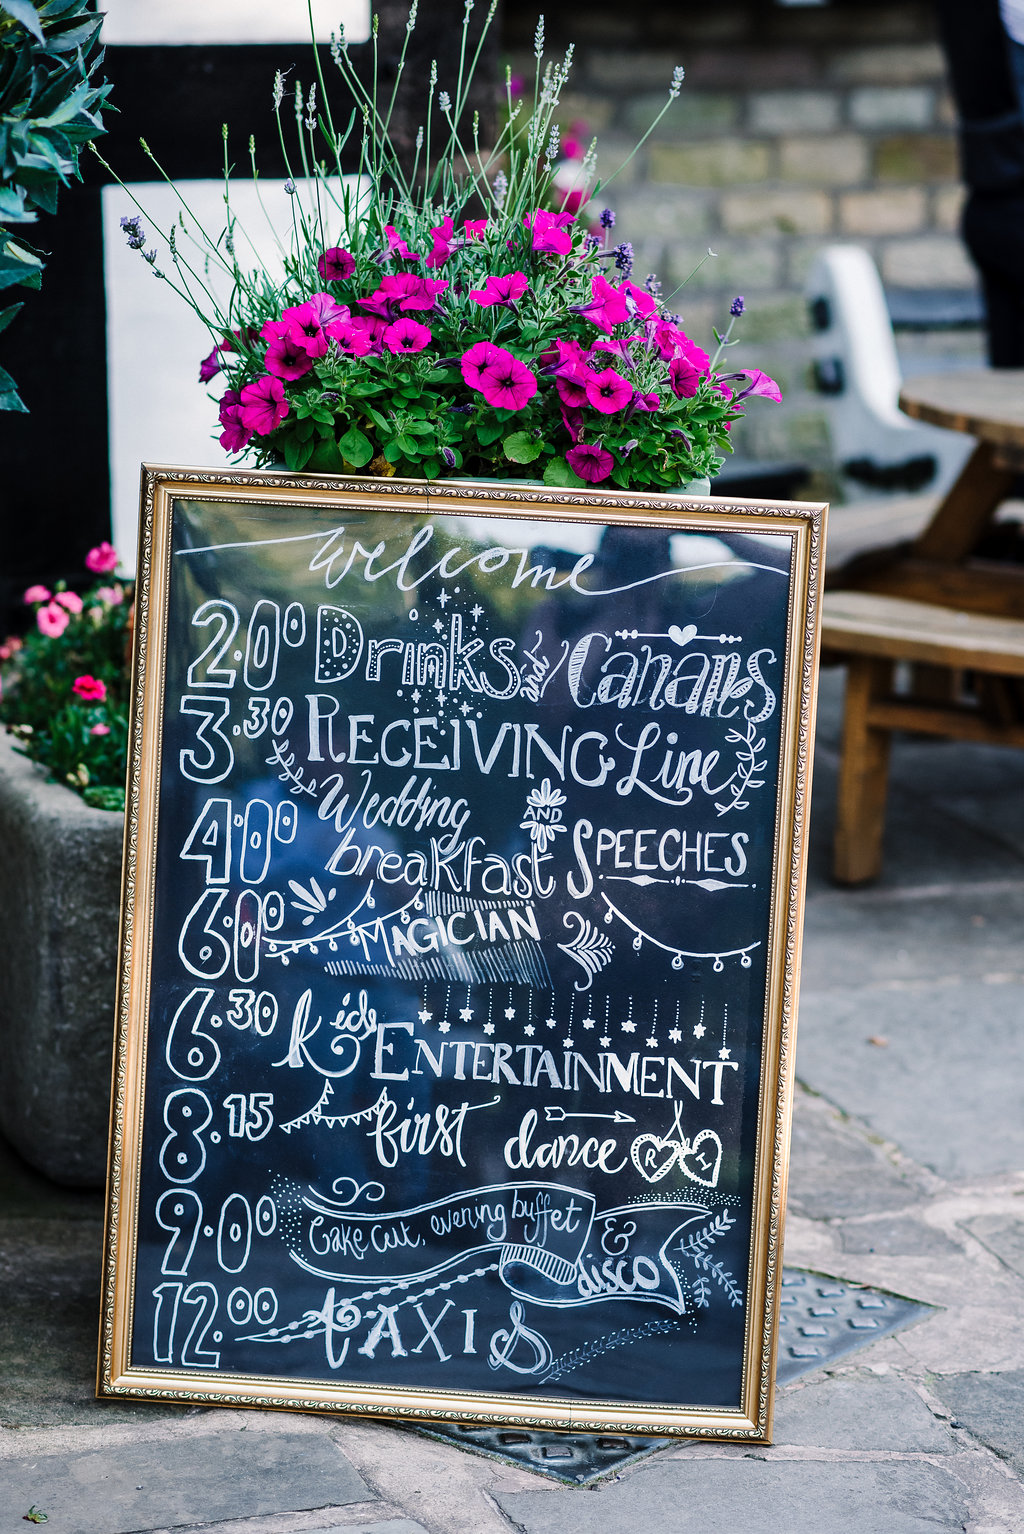 welcome
2.00 Drinks and Canapés
3.30 RECEIVING Line
4.00 Wedding breakfast AND SPEECHES
6.00 MAGICIAN
6.30 kids ENTERTAINMENT
8.15 first dance R I
9.00 Cake cut, evening buffet & disco
12.00 tAXIS